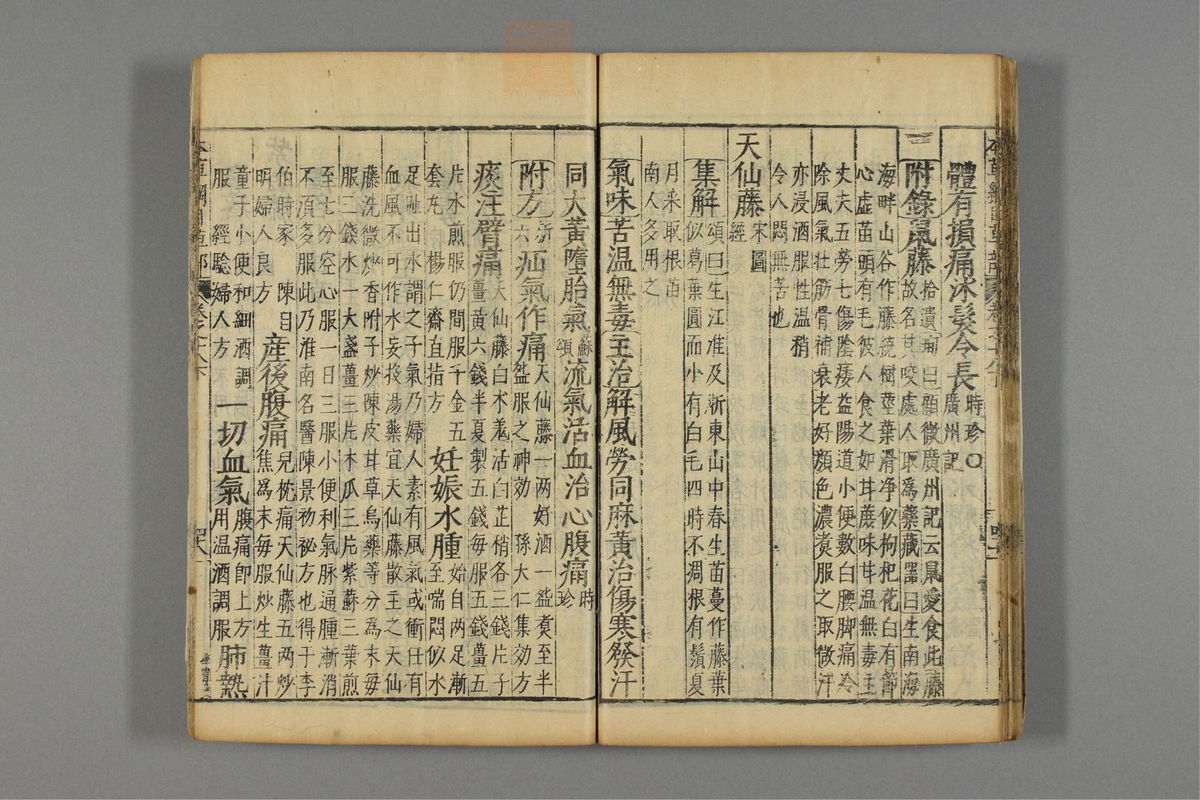 體有損痛沐髮令長時珍〇廣州記
附錄鼠藤拾遺珣曰顧微廣州記云鼠愛食此藤故名其咬處人取爲藥藏器曰生南海
海畔山谷作藤繞樹莖葉滑淨似枸杞花白有節
心虛苗頭有毛彼人食之如甘蔗味甘溫無毒主
丈夫五勞七傷陰痿益陽道小便數白腰脚痛冷
除風氣壯筋骨補衰老好顏色濃煑服之取微汗
亦浸酒服性溫稍
令人悶無苦也
天仙藤宋圖經
集解頌曰生江淮及浙東山中春生苗蔓作藤葉似葛葉圓而小有白毛四時不凋根有鬚夏
月采取根苗
南人多用之
氣味苦溫無毒主治解風勞同麻黃治傷寒發汗
同大黃墮胎氣蘇頌流氣活血治心腹痛時珍
附方新六疝氣作痛天仙藤一兩好酒一盌煑至半盌服之神効 孫天仁集効方
痰注臂痛天仙藤白术羌活白芷稍各三錢片子薑黃六錢半夏製五錢每服五錢薑五
片水煎服仍間服千金五
套丸 楊仁齋直指方
妊娠水腫始自兩足漸至喘悶似水
足趾出水謂之子氣乃婦人素有風氣或衝任有
血風不可作水妄投湯藥宜天仙藤散主之天仙
藤洗微炒香附子炒陳皮甘草烏藥等分爲末每
服三錢水一大盞薑三片木瓜三片紫蘇三葉煎
至七分空心服一日三服小便利氣脉通腫漸消
不湏多服此乃淮南名醫陳景初祕方也得于李
伯時家 陳自
明婦人良方
產後腹痛兒枕痛天仙藤五兩炒焦爲末每服炒生薑汁
童子小便和細酒調
服 經驗婦人方
一切血氣腹痛卽上方用溫酒調服肺熱